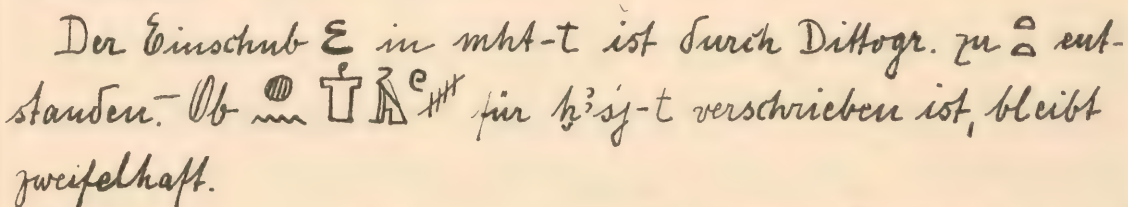 Der Einschub 𓏲 in mht-t ist durch Dittogr. zu 𓏏𓏏 ent-
standen.– Ob für ḫꜣśj-t verschrieben ist, bleibt
zweifelhaft.